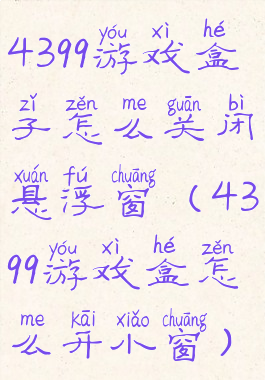 yóu xì hé
4399游戏盒
zǐ zěn me guān bì
子怎么关闭
xuán fú chuāng
悬浮窗（43
yóu xì hé zěn
99游戏盒怎
me kāi xiǎo chuāng
么开小窗）